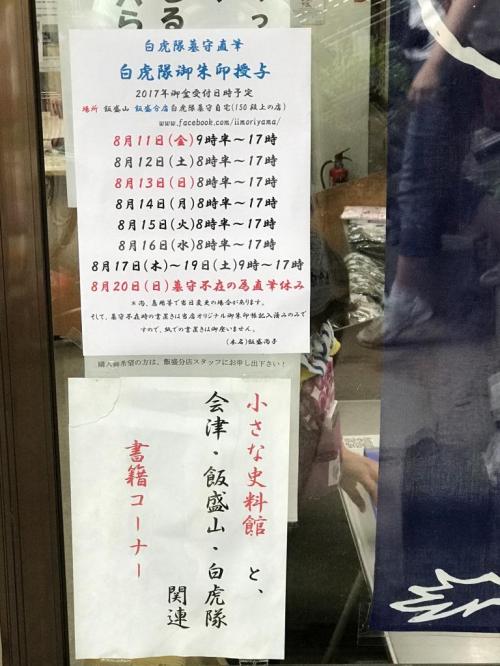 白虎隊墓守直筆
白虎隊御朱印授与
2017年御盆受付日時予定
場所 飯盛山 飯盛分店白虎隊墓守自宅(150段上の店)
www.facebook.com/iimoriyama/
8月11日(金)9時半～17時
8月12日(土)8時半～17時
8月13日(日)8時半～17時
8月14日(月)8時半～17時
8月15日(火)8時半～17時
8月16日(水)8時半～17時
8月17日(木)～19日(土)9時～17時
8月20日(日)墓守不在の為直筆休み
*尚、急用等で当日変更の場合があります。
そして、墓守不在時の書置きは当店オリジナル御朱印帳記入済みのみで
すので、紙での書置きは御座いません。
(本名)飯盛尚子
購入御希望の方は、飯盛分店スタッフにお申し出下さい!
小さな史料館 と、
会津・飯盛山・白虎隊
関連
書籍コーナー